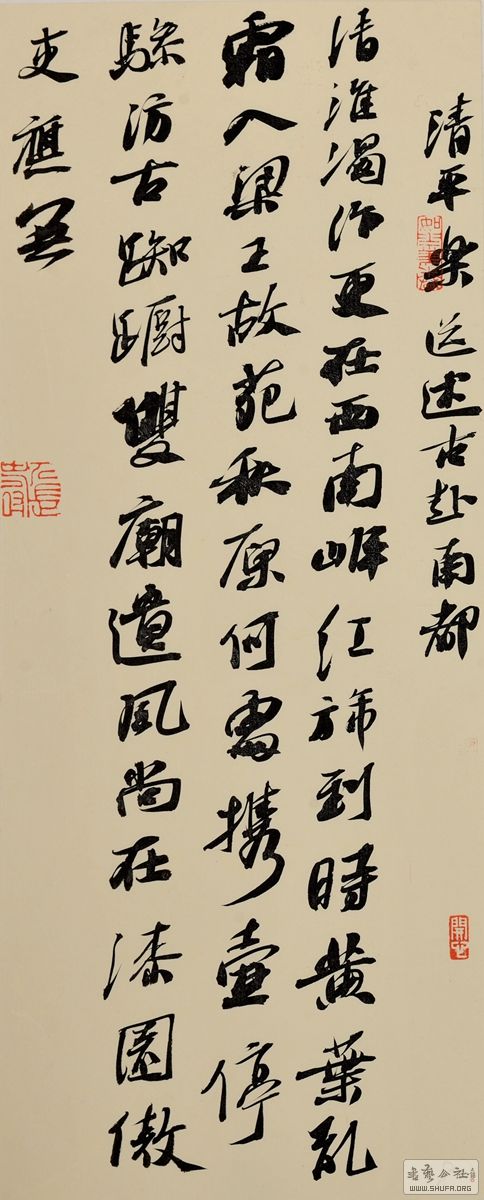 清平樂 送述古赴南都
清淮濁汴更在西南岸紅旆到時黄葉亂
霜入梁王故苑秋原何處攜壺停
驂訪古踟蹰雙廟遺風尚在漆園傲
吏應無
開屯
書藝公社
WWW.SHUFA.ORG